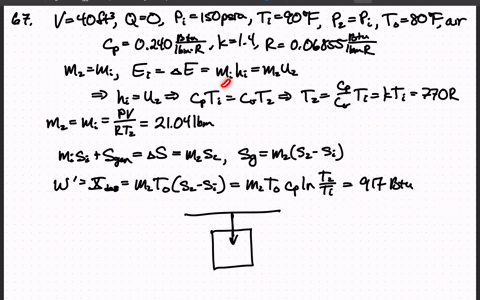 67. V=40ft³, Q=0, Pᵢ=150psia, Tᵢ=90°F, P₂=Pᵢ, T₀=80°F, air
Cp=0.240 Btu/lbm·R, k=1.4, R=0.06855 Btu/lbm·R
m₂=mᵢ, Eᵢ=ΔE=mᵢhᵢ=m₂u₂
⇒ hᵢ=u₂ ⇒ CpTᵢ=CvT₂ ⇒ T₂=Cp/Cv Tᵢ=kTᵢ=770R
m₂=mᵢ=PV/RT₂=21.04lbm
mᵢsᵢ+Sgen=ΔS=m₂s₂, Sg=m₂(s₂-sᵢ)
W'=Xdes=m₂T₀(s₂-sᵢ)=m₂T₀Cp ln T₂/Tᵢ=917 Btu